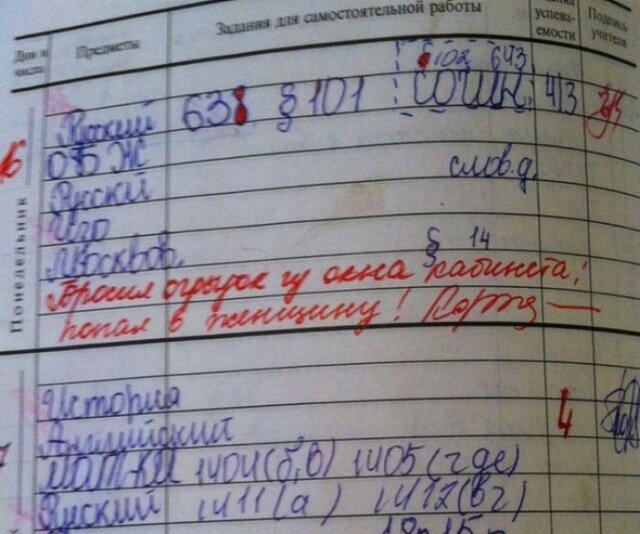 Дни и числа
Предметы
Задания для самостоятельной работы
успева-
емости
Подпись учителя
102 643
Русский 638 § 101 сочин. 4/3
16
ОБЖ
Русский слов.д.
Изо
Москвов. § 14
Понедельник
Бросил огрызок из окна кабинета!
попал в женщину!
История
Английский 4
7
МАТКА 1404(б,в) 1405(где)
Руский 1411(а) 1412(вг)